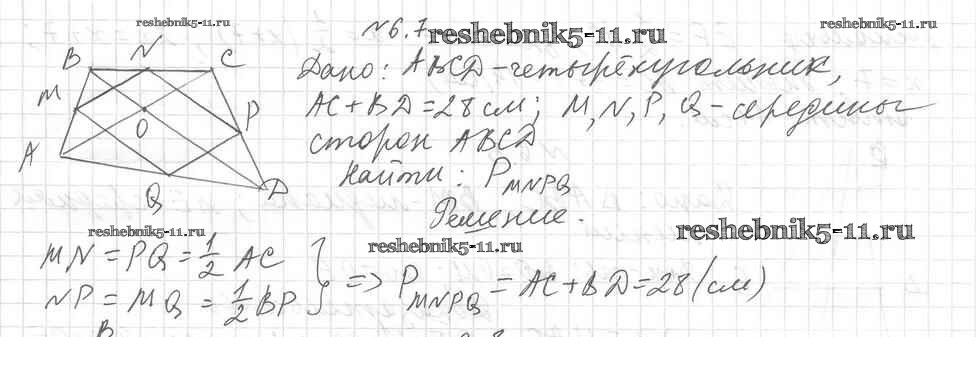 reshebnik5-11.ru
№6.7 reshebnik5-11.ru
reshebnik5-11.ru
B N C
M P
O
A
Q D
Дано: ABCD - четырёхугольник,
AC + BD = 28 см; M, N, P, Q - середины
сторон ABCD
Найти: P MNPQ
Решение.
reshebnik5-11.ru
reshebnik5-11.ru
reshebnik5-11.ru
MN = PQ = 1/2 AC
NP = MQ = 1/2 BP } => P MNPQ = AC + BD = 28 (см)
B